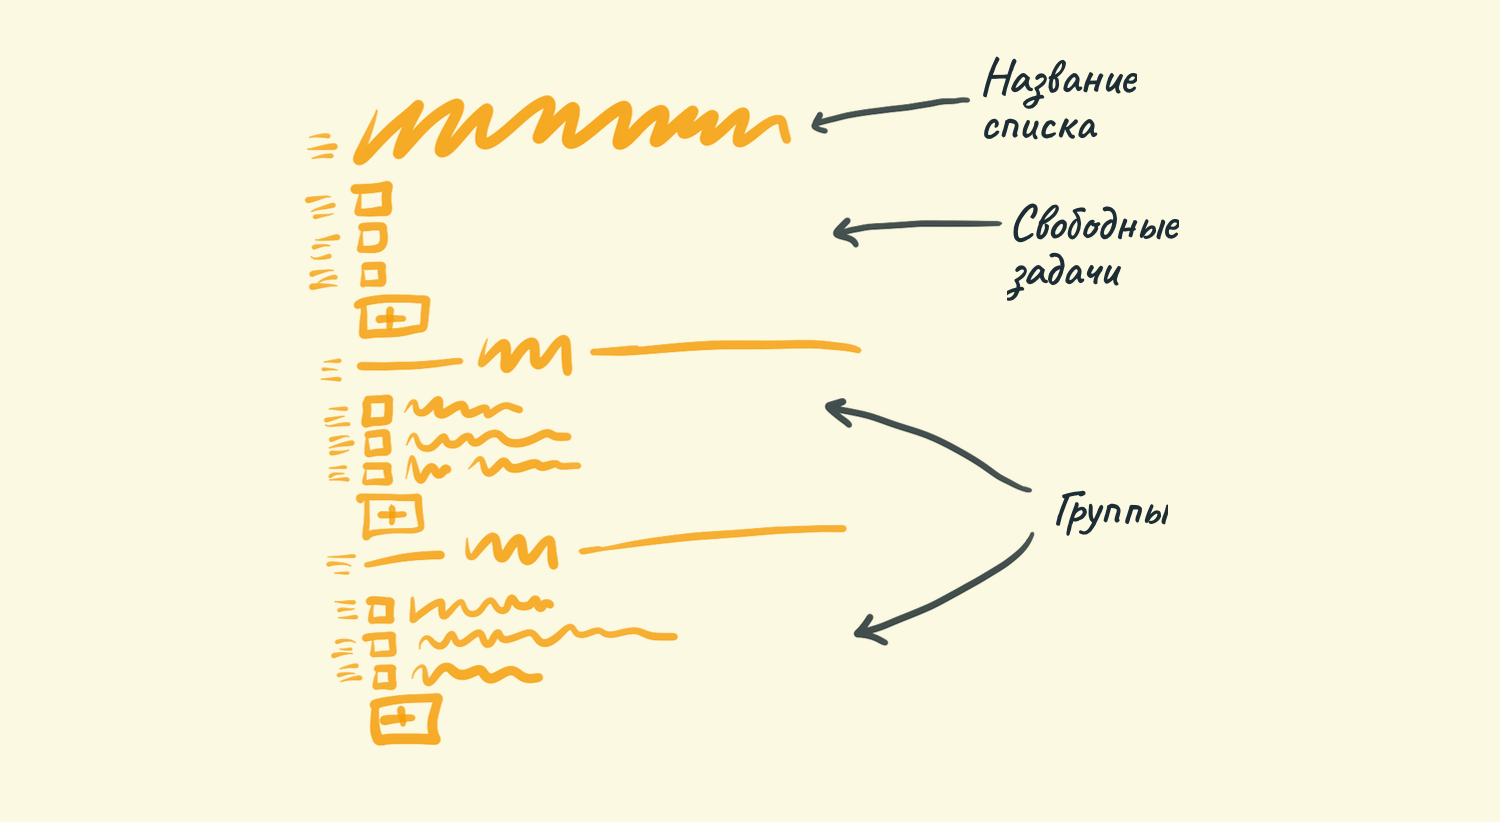 Название
списка
Свободные
задачи
Группы